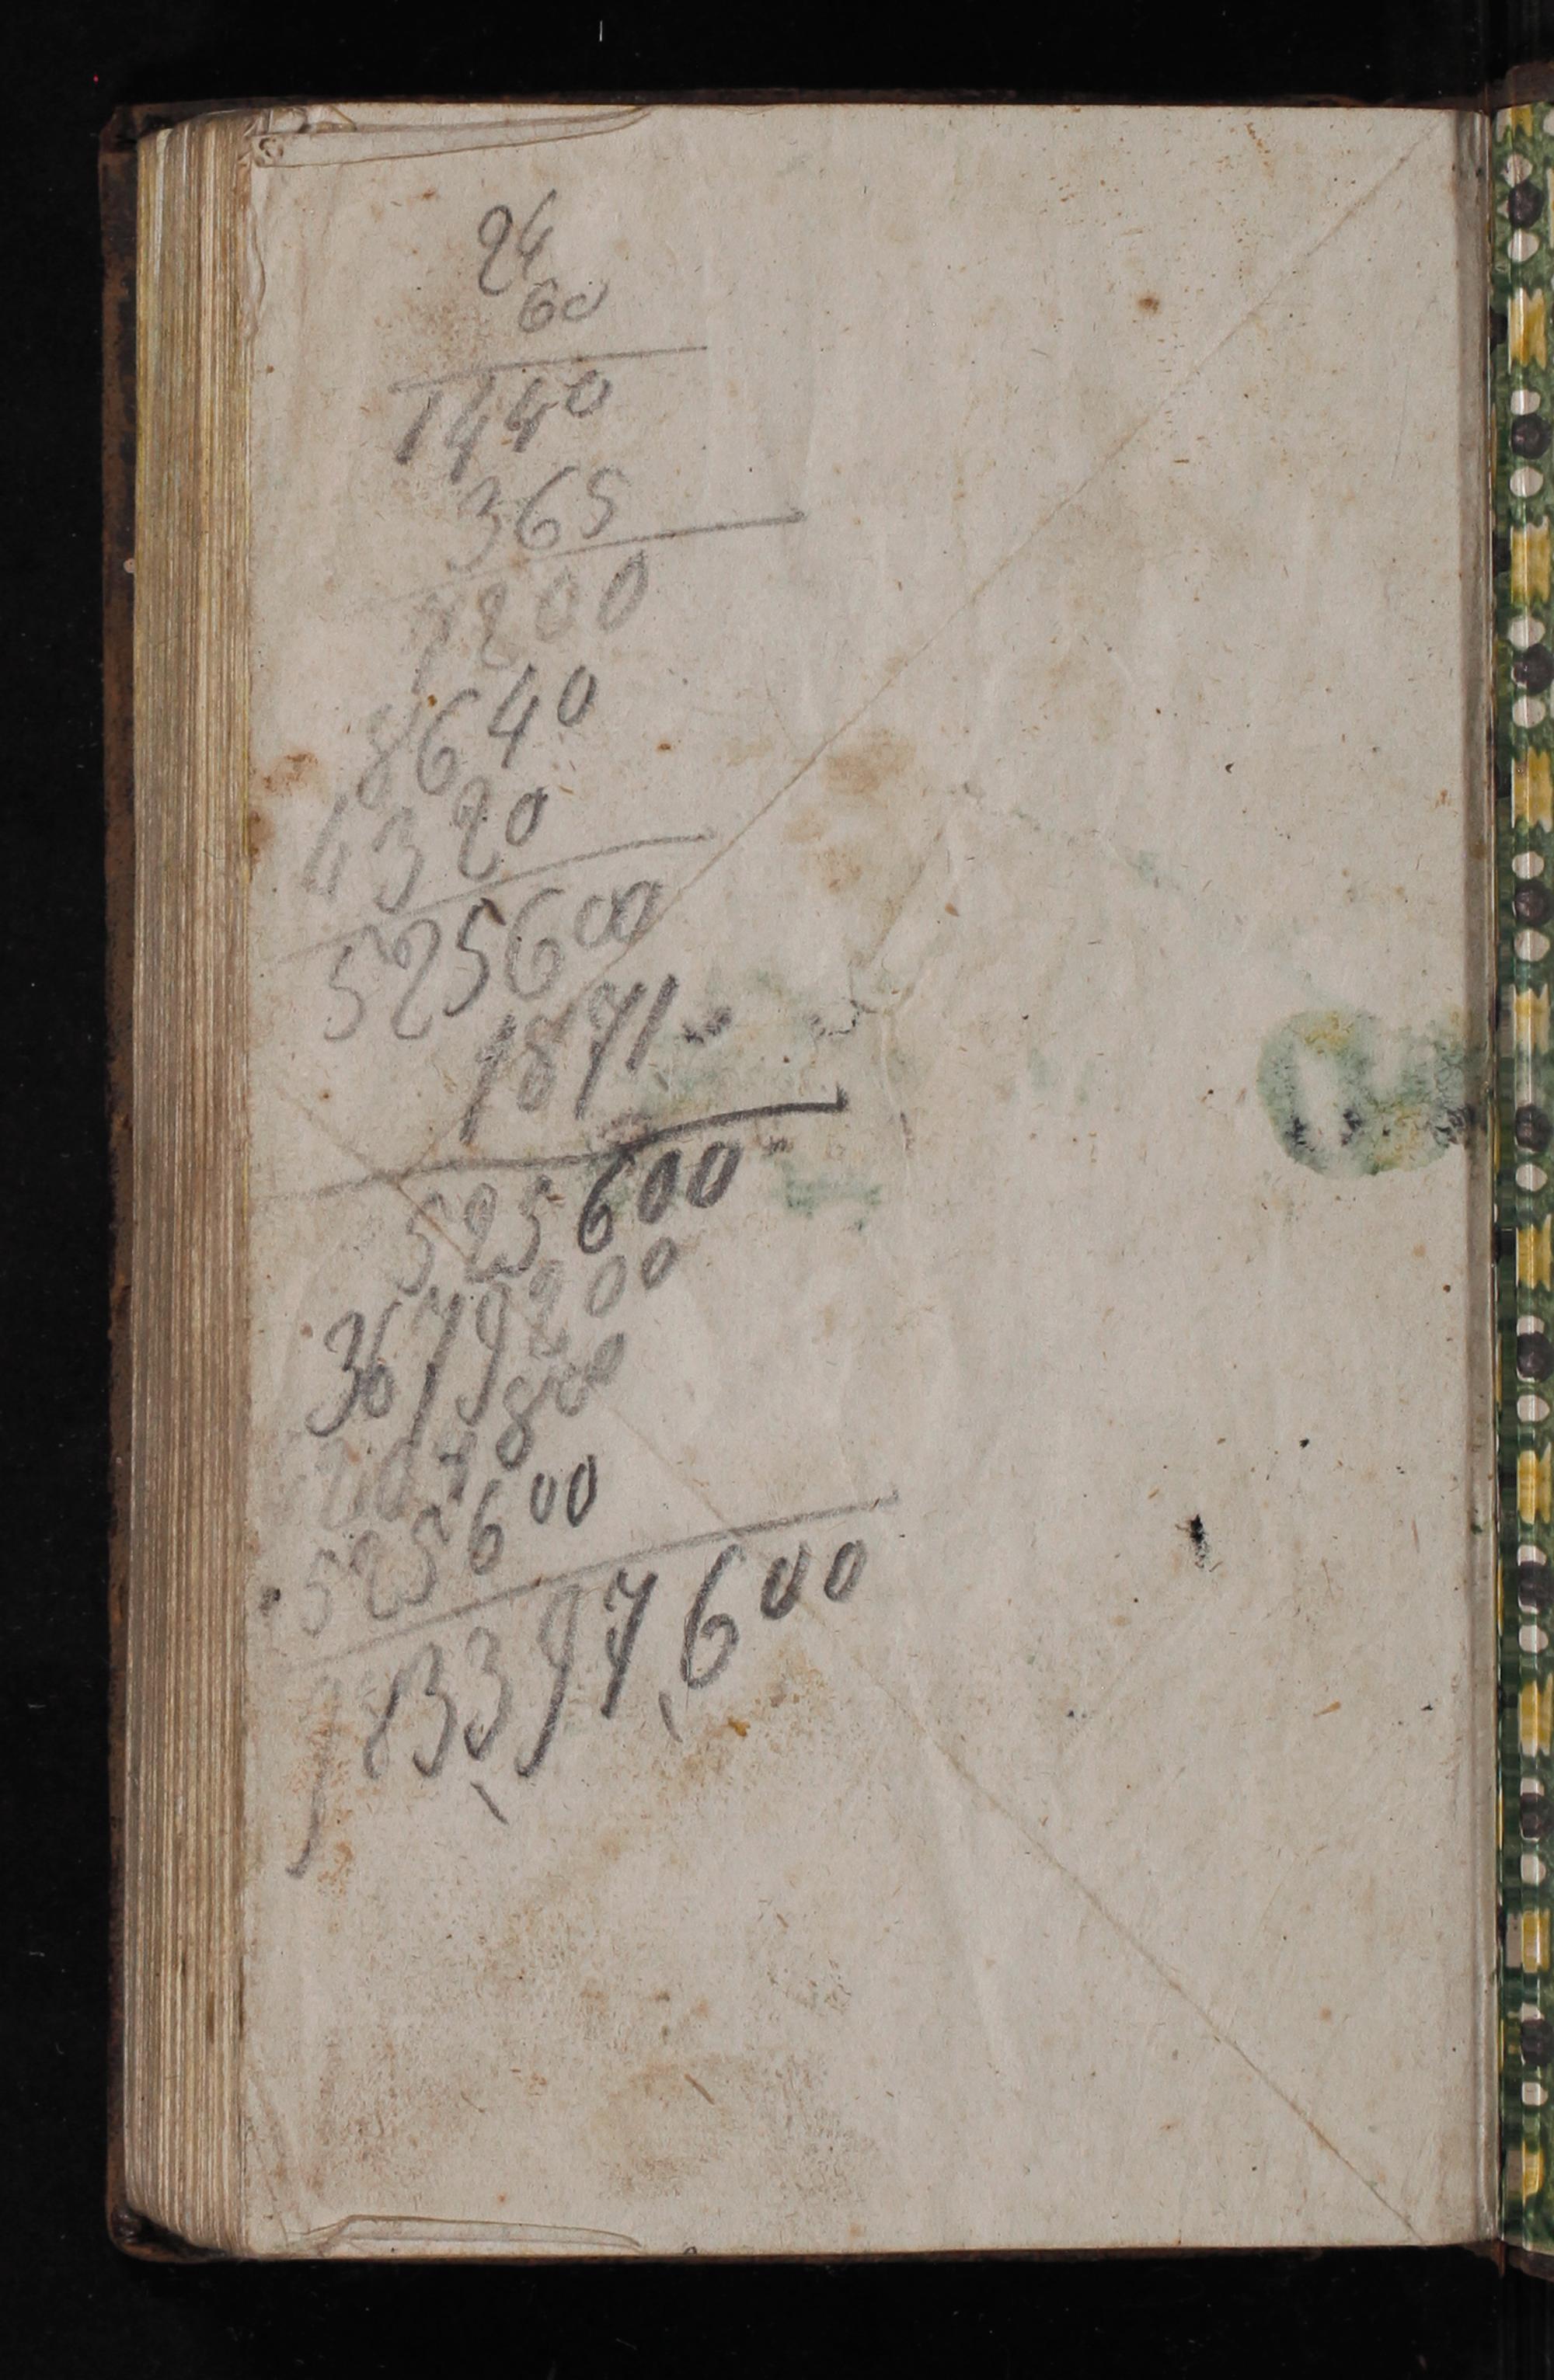 24
60
1440
365
7200
8640
4320
525600
1871
525600
3679200
4204800
525600
983,397,600